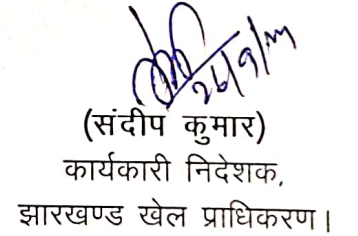 (संदीप कुमार)
कार्यकारी निदेशक,
झारखण्ड खेल प्राधिकरण।